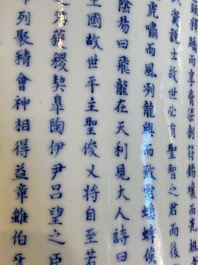 而享膏粱剖符錫壤而光祖
士故世必有聖智之君而後
虎嘯而風列龍興而致雲蟋蟀俟
陰易曰飛龍在天利見大人詩曰
王國故世平主聖俊乂將自至若
獲稷契皐陶伊尹呂望之臣
列聚精會神相得益章雖伯牙